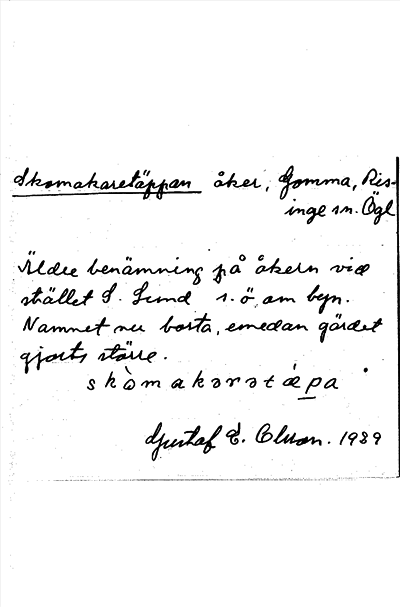 Skomakaretäppan åker, Gomma, Ris-
inge sn. Ögl
Äldre benämning på åkern vid
stället S. Lund s.ö. om byn.
Namnet nu borta, emedan gärdet
gjorts större.
skòmakarətǽpa
Gustaf E. Olsson. 1939